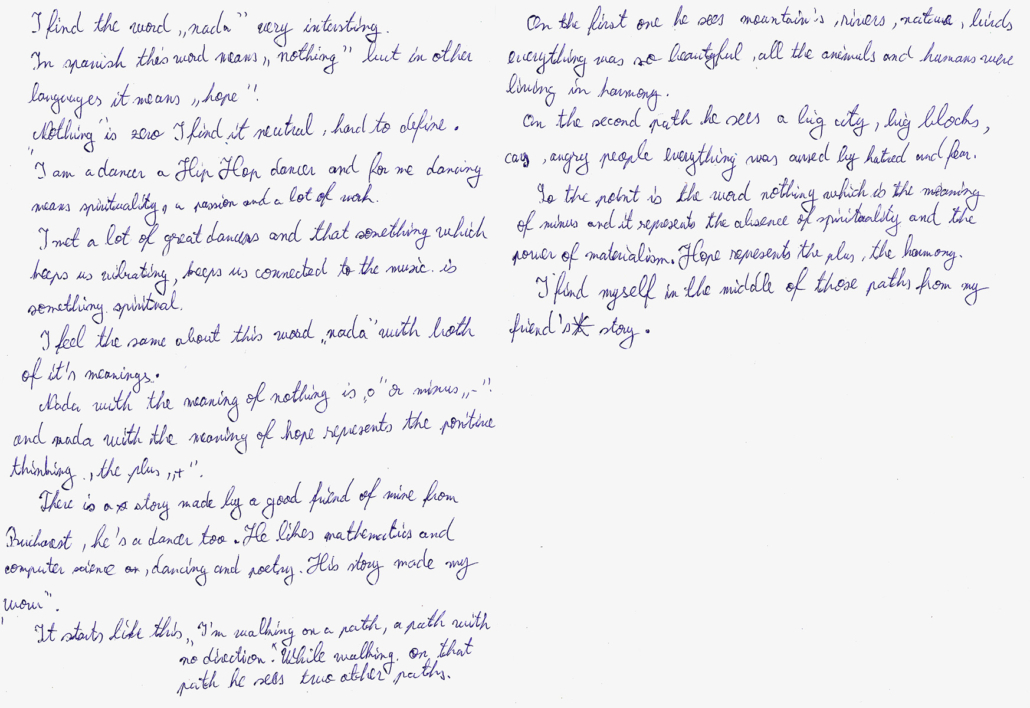 I find the word „nada" very interesting.
In spanish this word means „nothing" but in other
languages it means „hope"!
„Nothing" is zero I find it neutral, hard to define.
I am a dancer a Hip Hop dancer and for me dancing
means spirituality, a passion and a lot of work.
I met a lot of great dancers and that something which
keeps us vibrating, keeps us connected to the music is
something spiritual.
I feel the same about this word „nada" with both
of it's meanings.
Nada with the meaning of nothing is „0" or minus „-"!
and nada with the meaning of hope represents the positive
thinking, the plus „+".
There is a story made by a good friend of mine from
Bucharest, he's a dancer too. He likes mathematics and
computer science, dancing and poetry. His story made my
„wow".
It starts like this „I'm walking on a path, a path with
no direction". While walking on that
path he sees two other paths.
On the first one he sees mountain's, rivers, nature, birds
everything was so beautyful, all the animals and humans were
living in harmony.
On the second path he sees a big city, big blocks,
cars, angry people everything was cursed by hatred and fear.
So the point is the word nothing which is the meaning
of minus and it represents the absence of spirituality and the
power of materialism. Hope represents the plus, the harmony.
I find myself in the middle of those paths from my
friend's story.